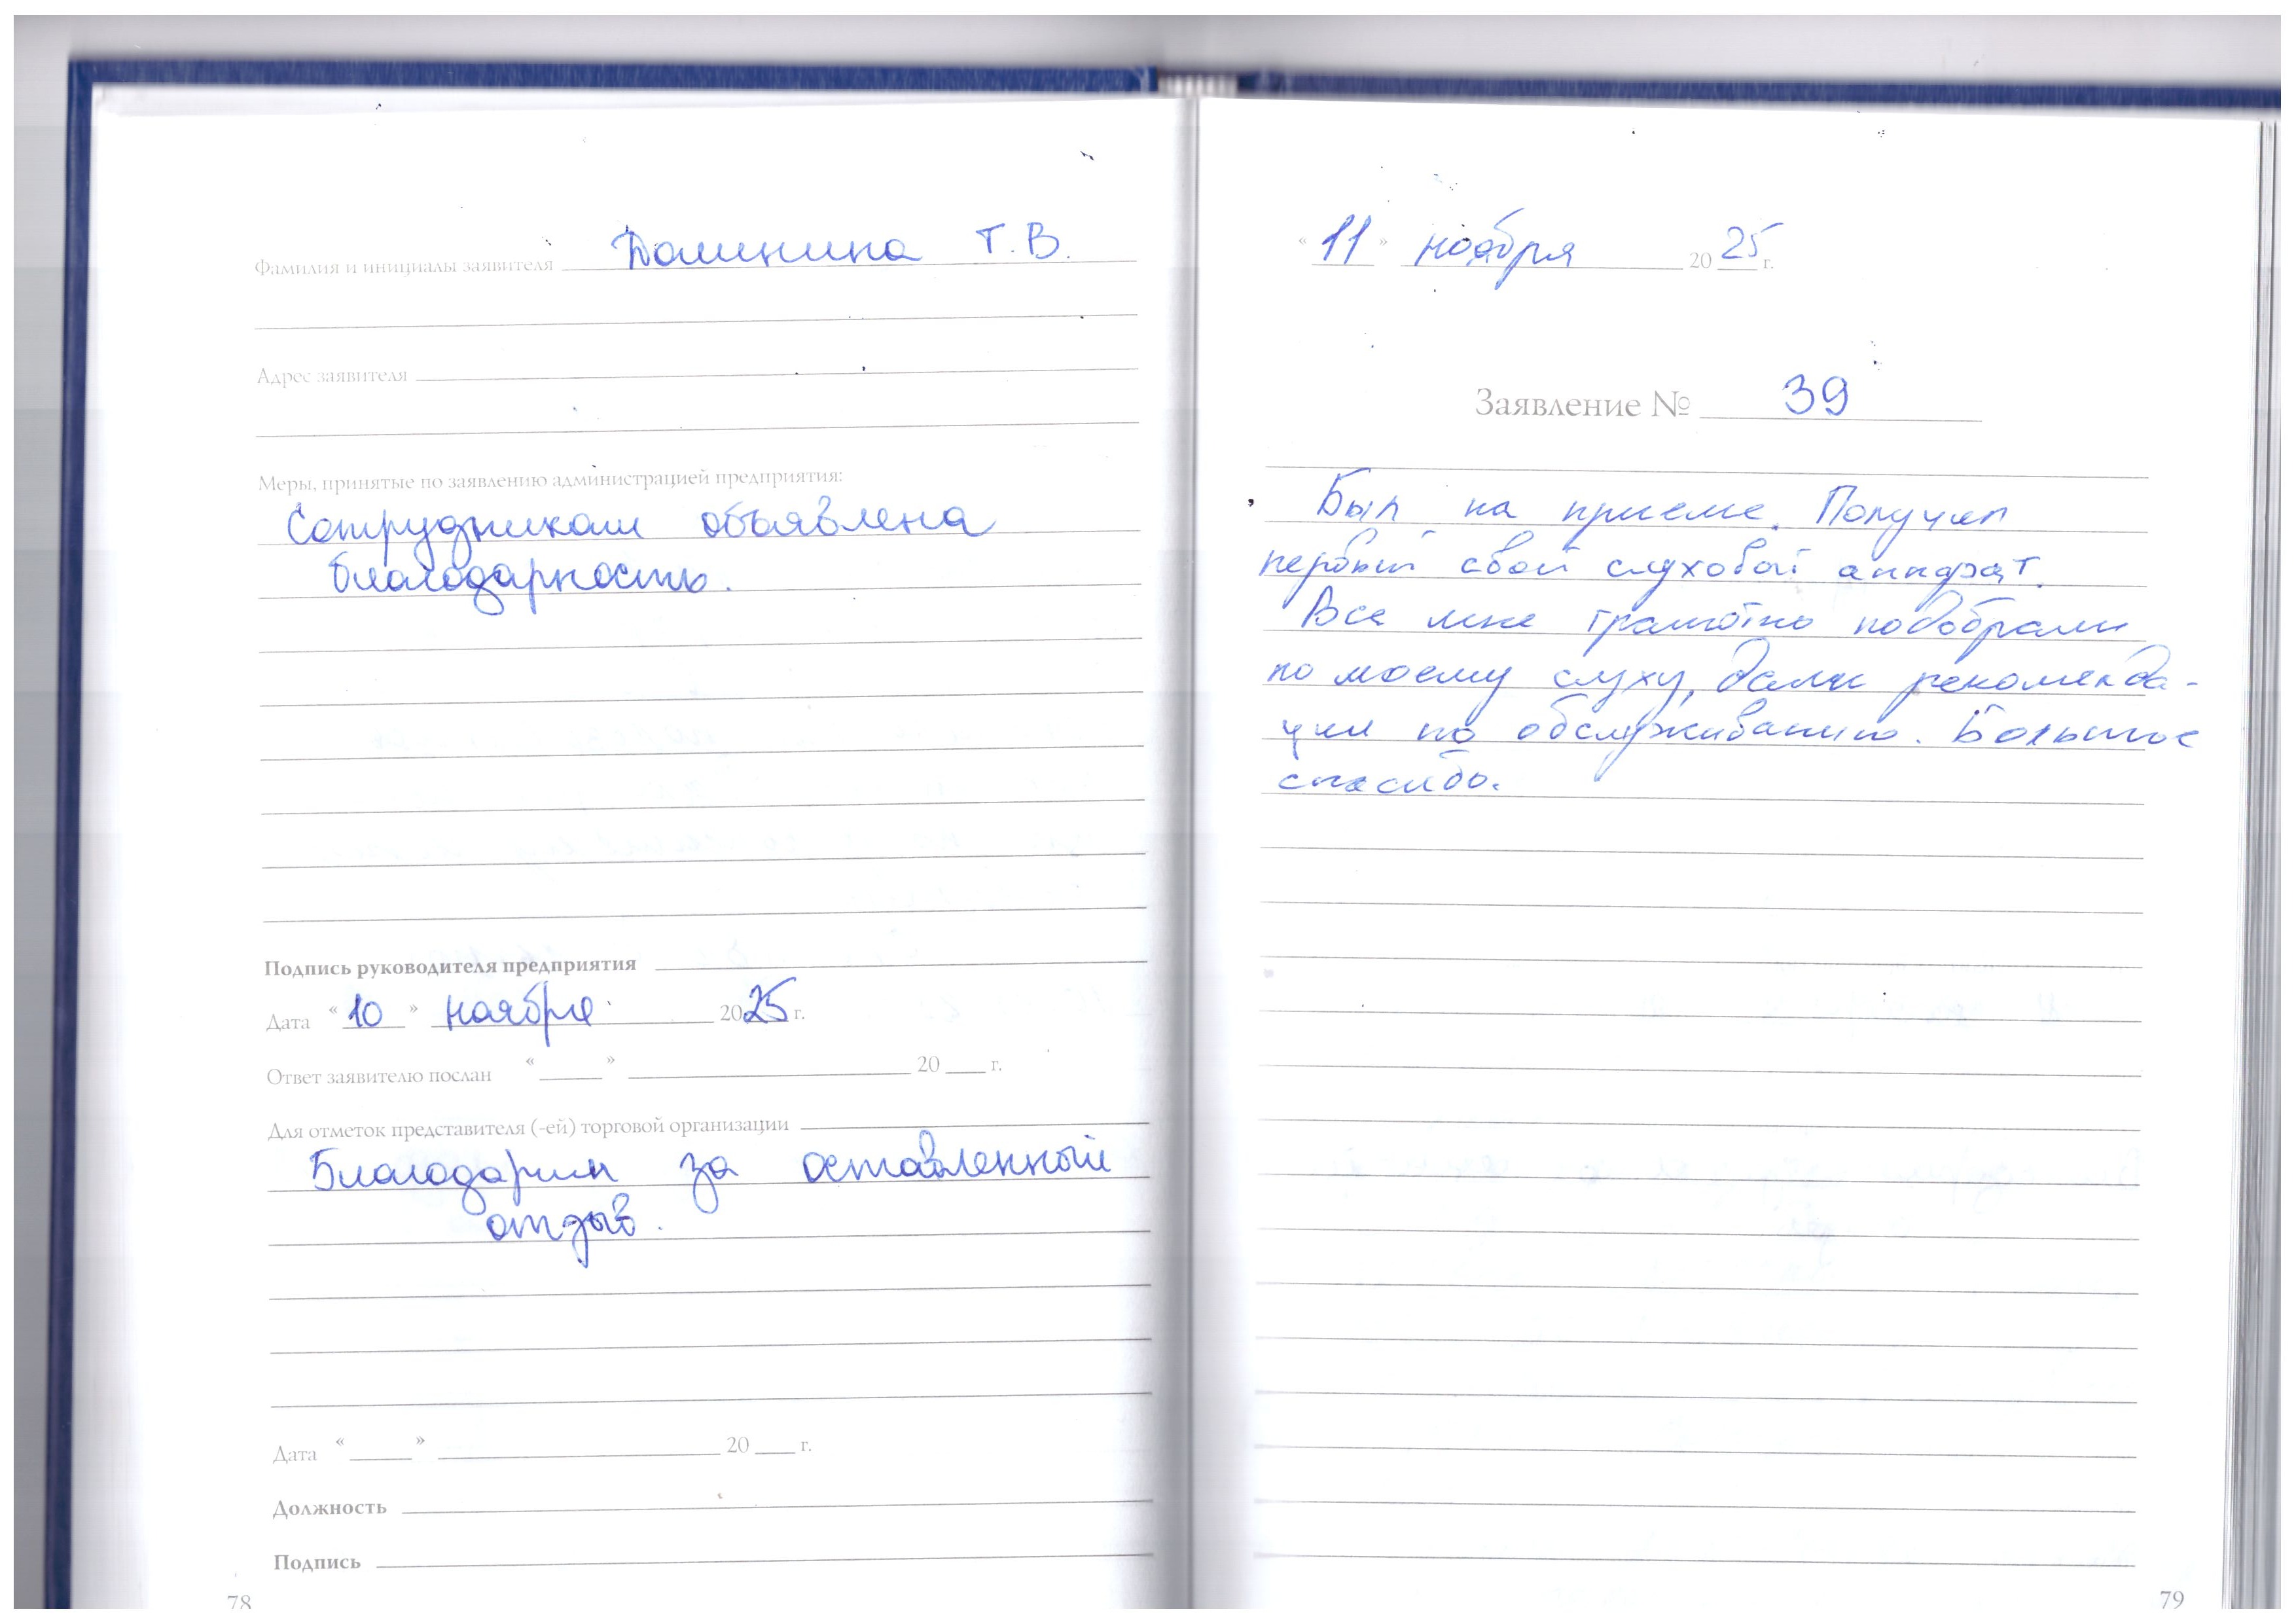 Фамилия и инициалы заявителя Т. В.
Адрес заявителя
Меры, принятые по заявлению администрацией предприятия:
Сотрудникам объявлена
благодарность.
Подпись руководителя предприятия
Дата «10» ноября 2025 г.
Ответ заявителю послан « » 20 г.
Для отметок представителя (-ей) торговой организации
Благодарим за оставленный
отзыв.
Дата « » 20 г.
Должность
Подпись
78
«11» ноября 2025 г.
Заявление № 39
Был на приеме. Получил
первый свой слуховой аппарат.
Все мне грамотно подобрали
по моему слуху, дали рекоменда-
ции по обслуживанию. Большое
спасибо.
79